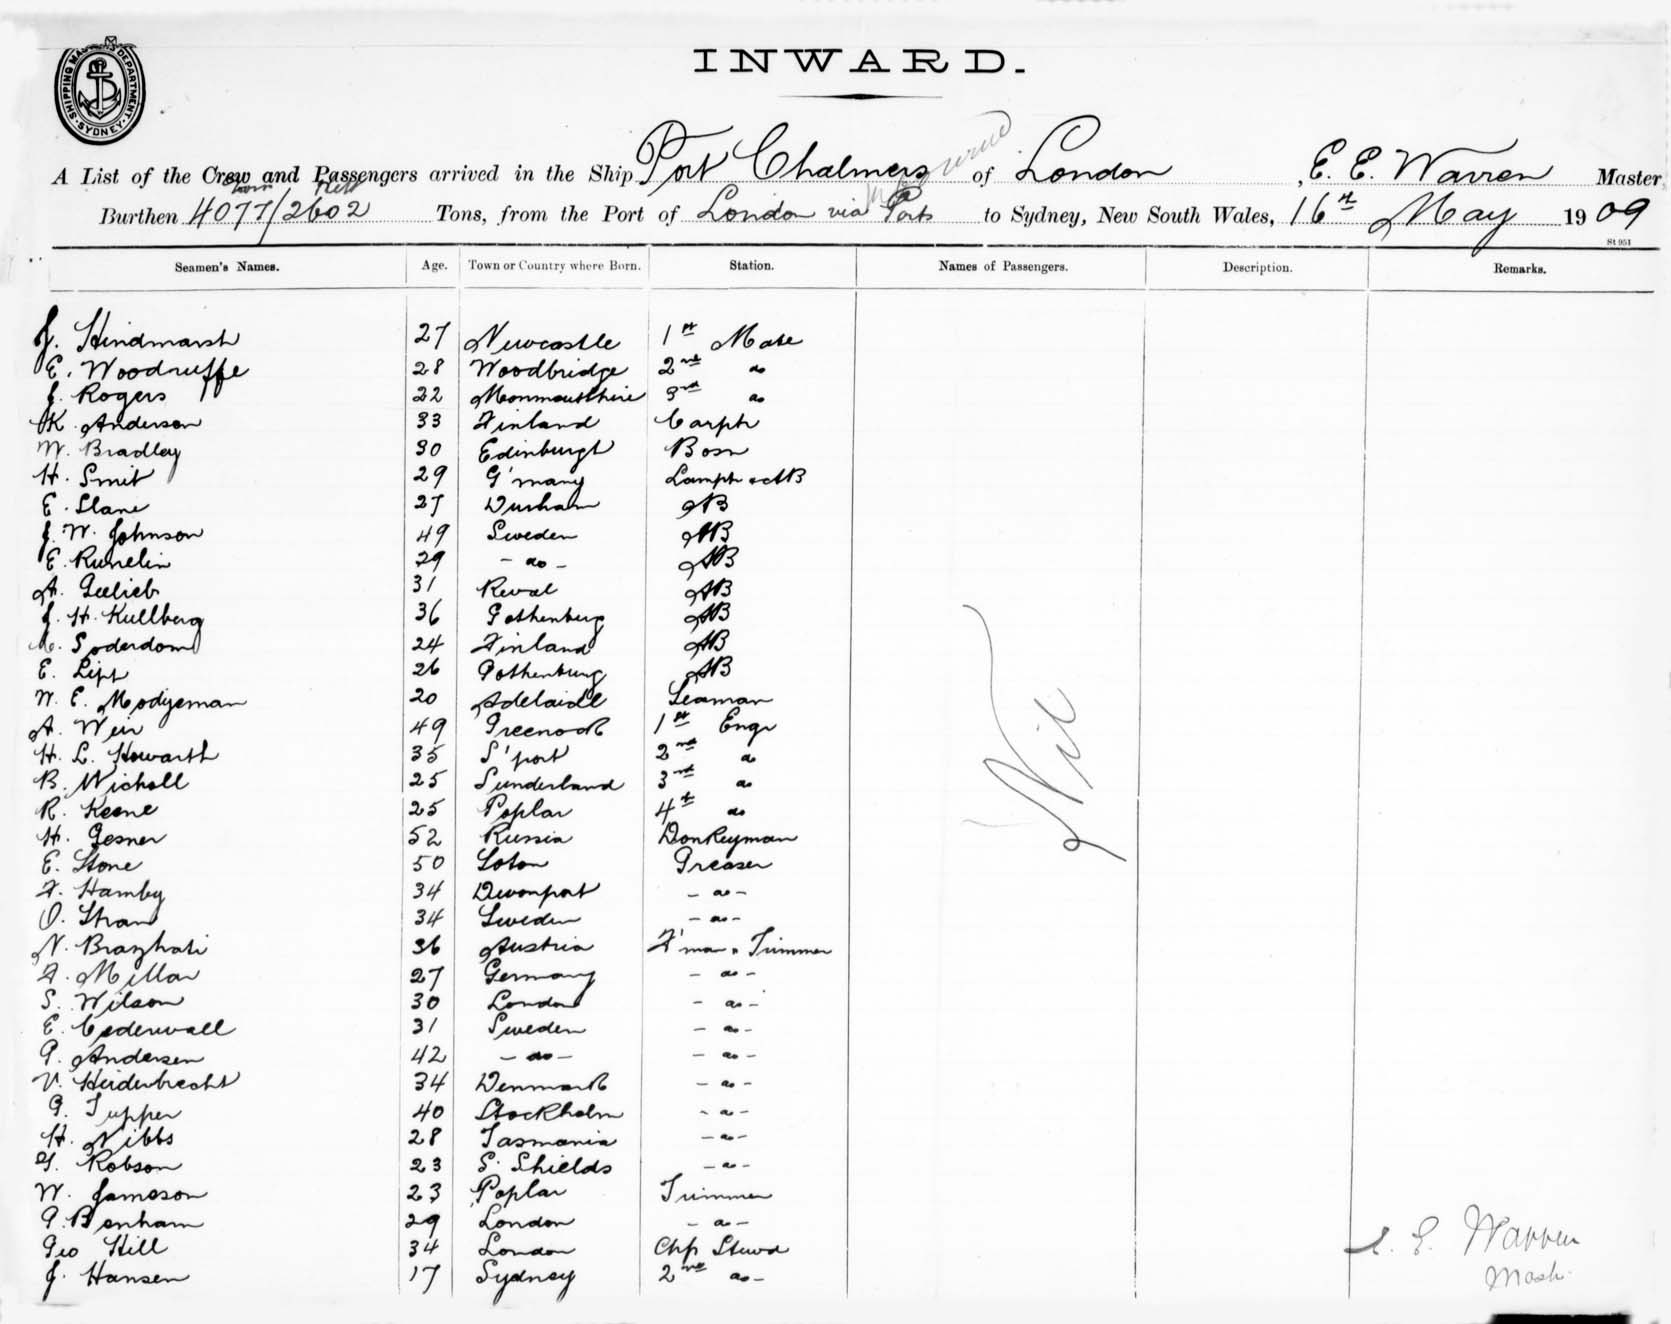 INWARD.
SHIPPING MASTER'S DEPARTMENT. SYDNEY.
A List of the Crew and Passengers arrived in the Ship Port Chalmers of London, E. E. Warren Master
Burthen 4077/2602 Tons, from the Port of London via Ports to Sydney, New South Wales, 16th May 1909
St 951
Seamen's Names. Age. Town or Country where Born. Station. Names of Passengers. Description. Remarks.
J. Hindmarsh 27 Newcastle 1st Mate
E. Woodruffe 28 Woodbridge 2nd do
J. Rogers 22 Monmouthshire 3rd do
K. Anderson 33 Finland Carptr
W. Bradley 30 Edinburgh Bosn
H. Smit 29 G'many Lamptr & AB
E. Slane 27 Durham AB
J. W. Johnson 49 Sweden AB
E. Runelin 29 - do - AB
A. 31 Reval AB
J. H. Kullberg 36 Gothenburg AB
Soderdom 24 Finland AB
E. Lipp 26 Gothenburg AB
W. E. Modyeman 20 Adelaide Seaman
A. Weir 49 Greenock 1st Engr
H. L. Howarth 35 S'port 2nd do
B. Nicholl 25 Sunderland 3rd do
R. Keene 25 Poplar 4th do
H. Gesner 52 Russia Donkeyman
E. Stone 50 Greaser
F. Hamby 34 Devonport - do -
O. Strand 34 Sweden - do -
N. 36 Austria F'man & Trimmer
F. Millar 27 Germany - do -
S. Wilson 30 London - do -
E. Cederwall 31 Sweden - do -
G. Andersen 42 - do - - do -
V. Heiderbrecht 34 Denmark - do -
G. Tupper 40 Stockholm - do -
H. Nibbs 28 Tasmania - do -
Robson 23 S. Shields - do -
W. Jameson 23 Poplar Trimmer
G. Benham 29 London - do -
Geo Hill 34 London Chf Stewd
J. Hansen 17 Sydney 2nd do -
Nil
E. E. Warren
Mastr